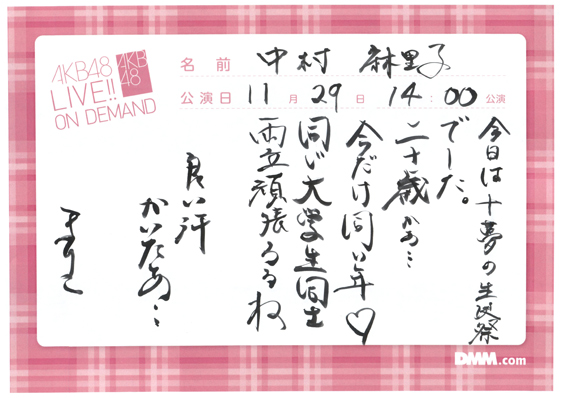 AKB48
LIVE!!
ON DEMAND
AKB
48
名前 中村 麻里子
公演日 11月29日 14:00公演
今日は十夢の生誕祭
でした。
二十歳かぁ…
今だけ同い年♡
同じ大学生同士
両立頑張るるね
良い汗
かいたぁ…
まりこ
DMM.com